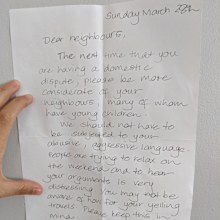 Sunday March 22nd
Dear neighbours,
The next time that you
are having a domestic
dispute, please be more
considerate of your
neighbours, many of whom
have young children.
We should not have to
be subjected to your
abusive, aggressive language.
are trying to relax on
the weekend and to hear
your arguments is very
distressing. You may not be
of your yelling
Please keep this in
mind